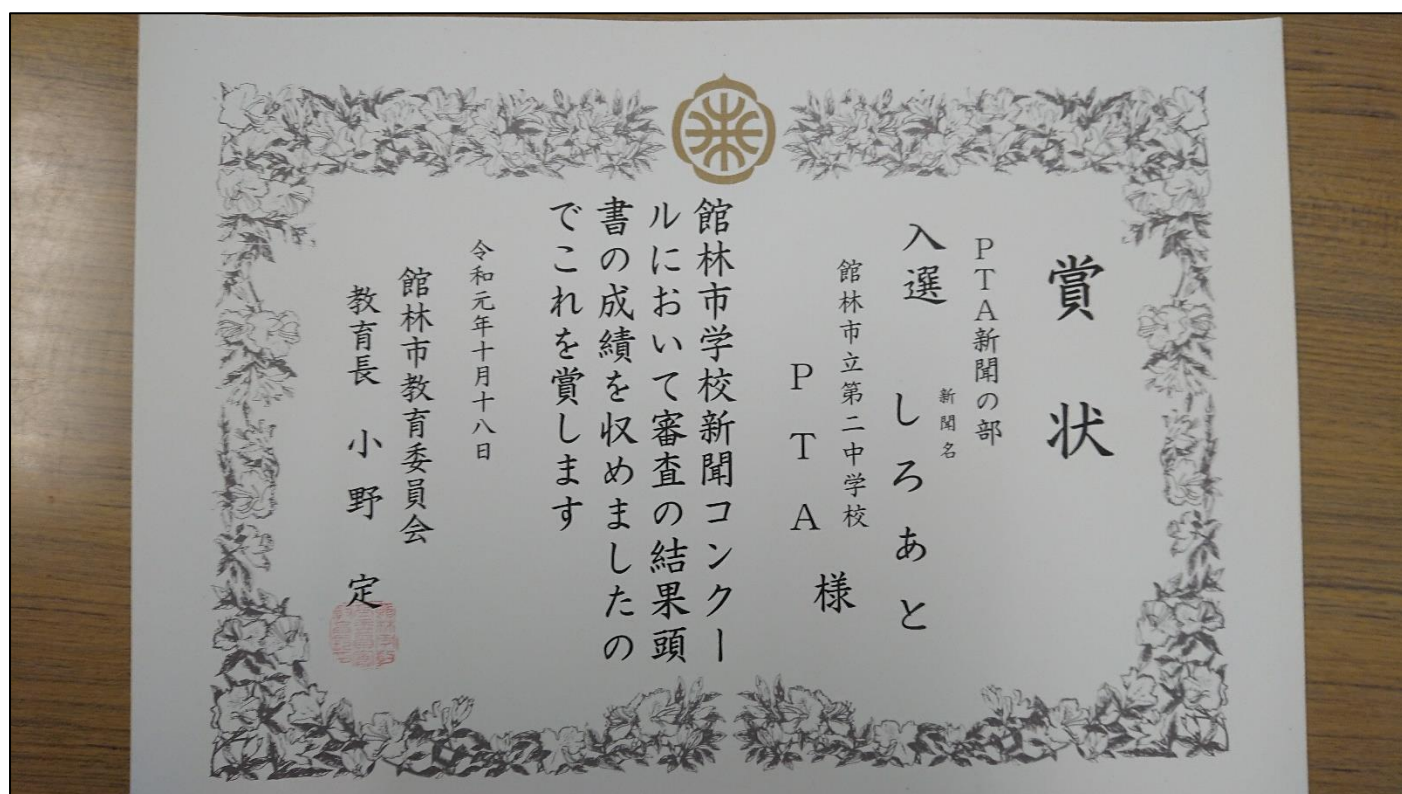 賞状
PTA新聞の部
新聞名
入選 しろあと
館林市立第二中学校
PTA 様
館林市学校新聞コンクー
ルにおいて審査の結果頭
書の成績を収めましたの
でこれを賞します
令和元年十月十八日
館林市教育委員会
教育長 小野 定